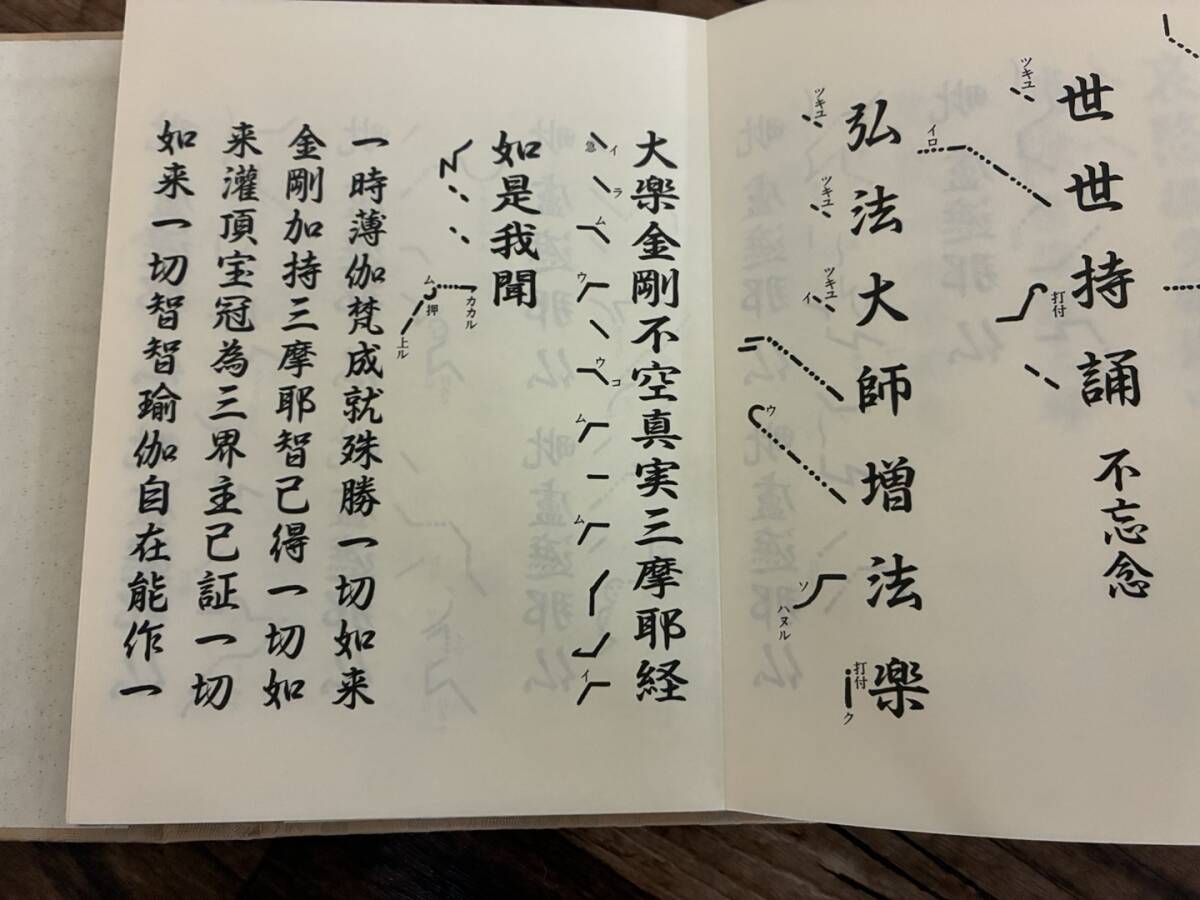 世世持誦 不忘念
ツキユ
イロ
打付
弘法大師増法楽
ツキユ
ツキユ
ツキユ
イ
ウ
ソ
ハヌル
打付
ク
大楽金剛不空真実三摩耶経
イ
急
ラ
ム
ウ
ウ
コ
ム
ム
イ
如是我聞
カカル
ム
押
上ル
一時薄伽梵成就殊勝一切如来
金剛加持三摩耶智已得一切如
来灌頂宝冠為三界主已証一切
如来一切智智瑜伽自在能作一